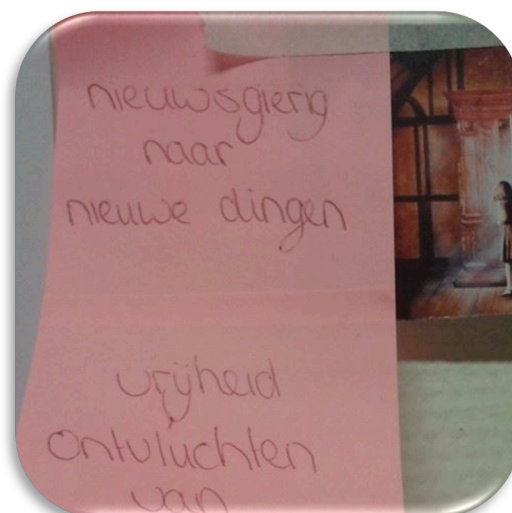 nieuwsgierig
naar
nieuwe dingen
vrijheid
ontvluchten
van